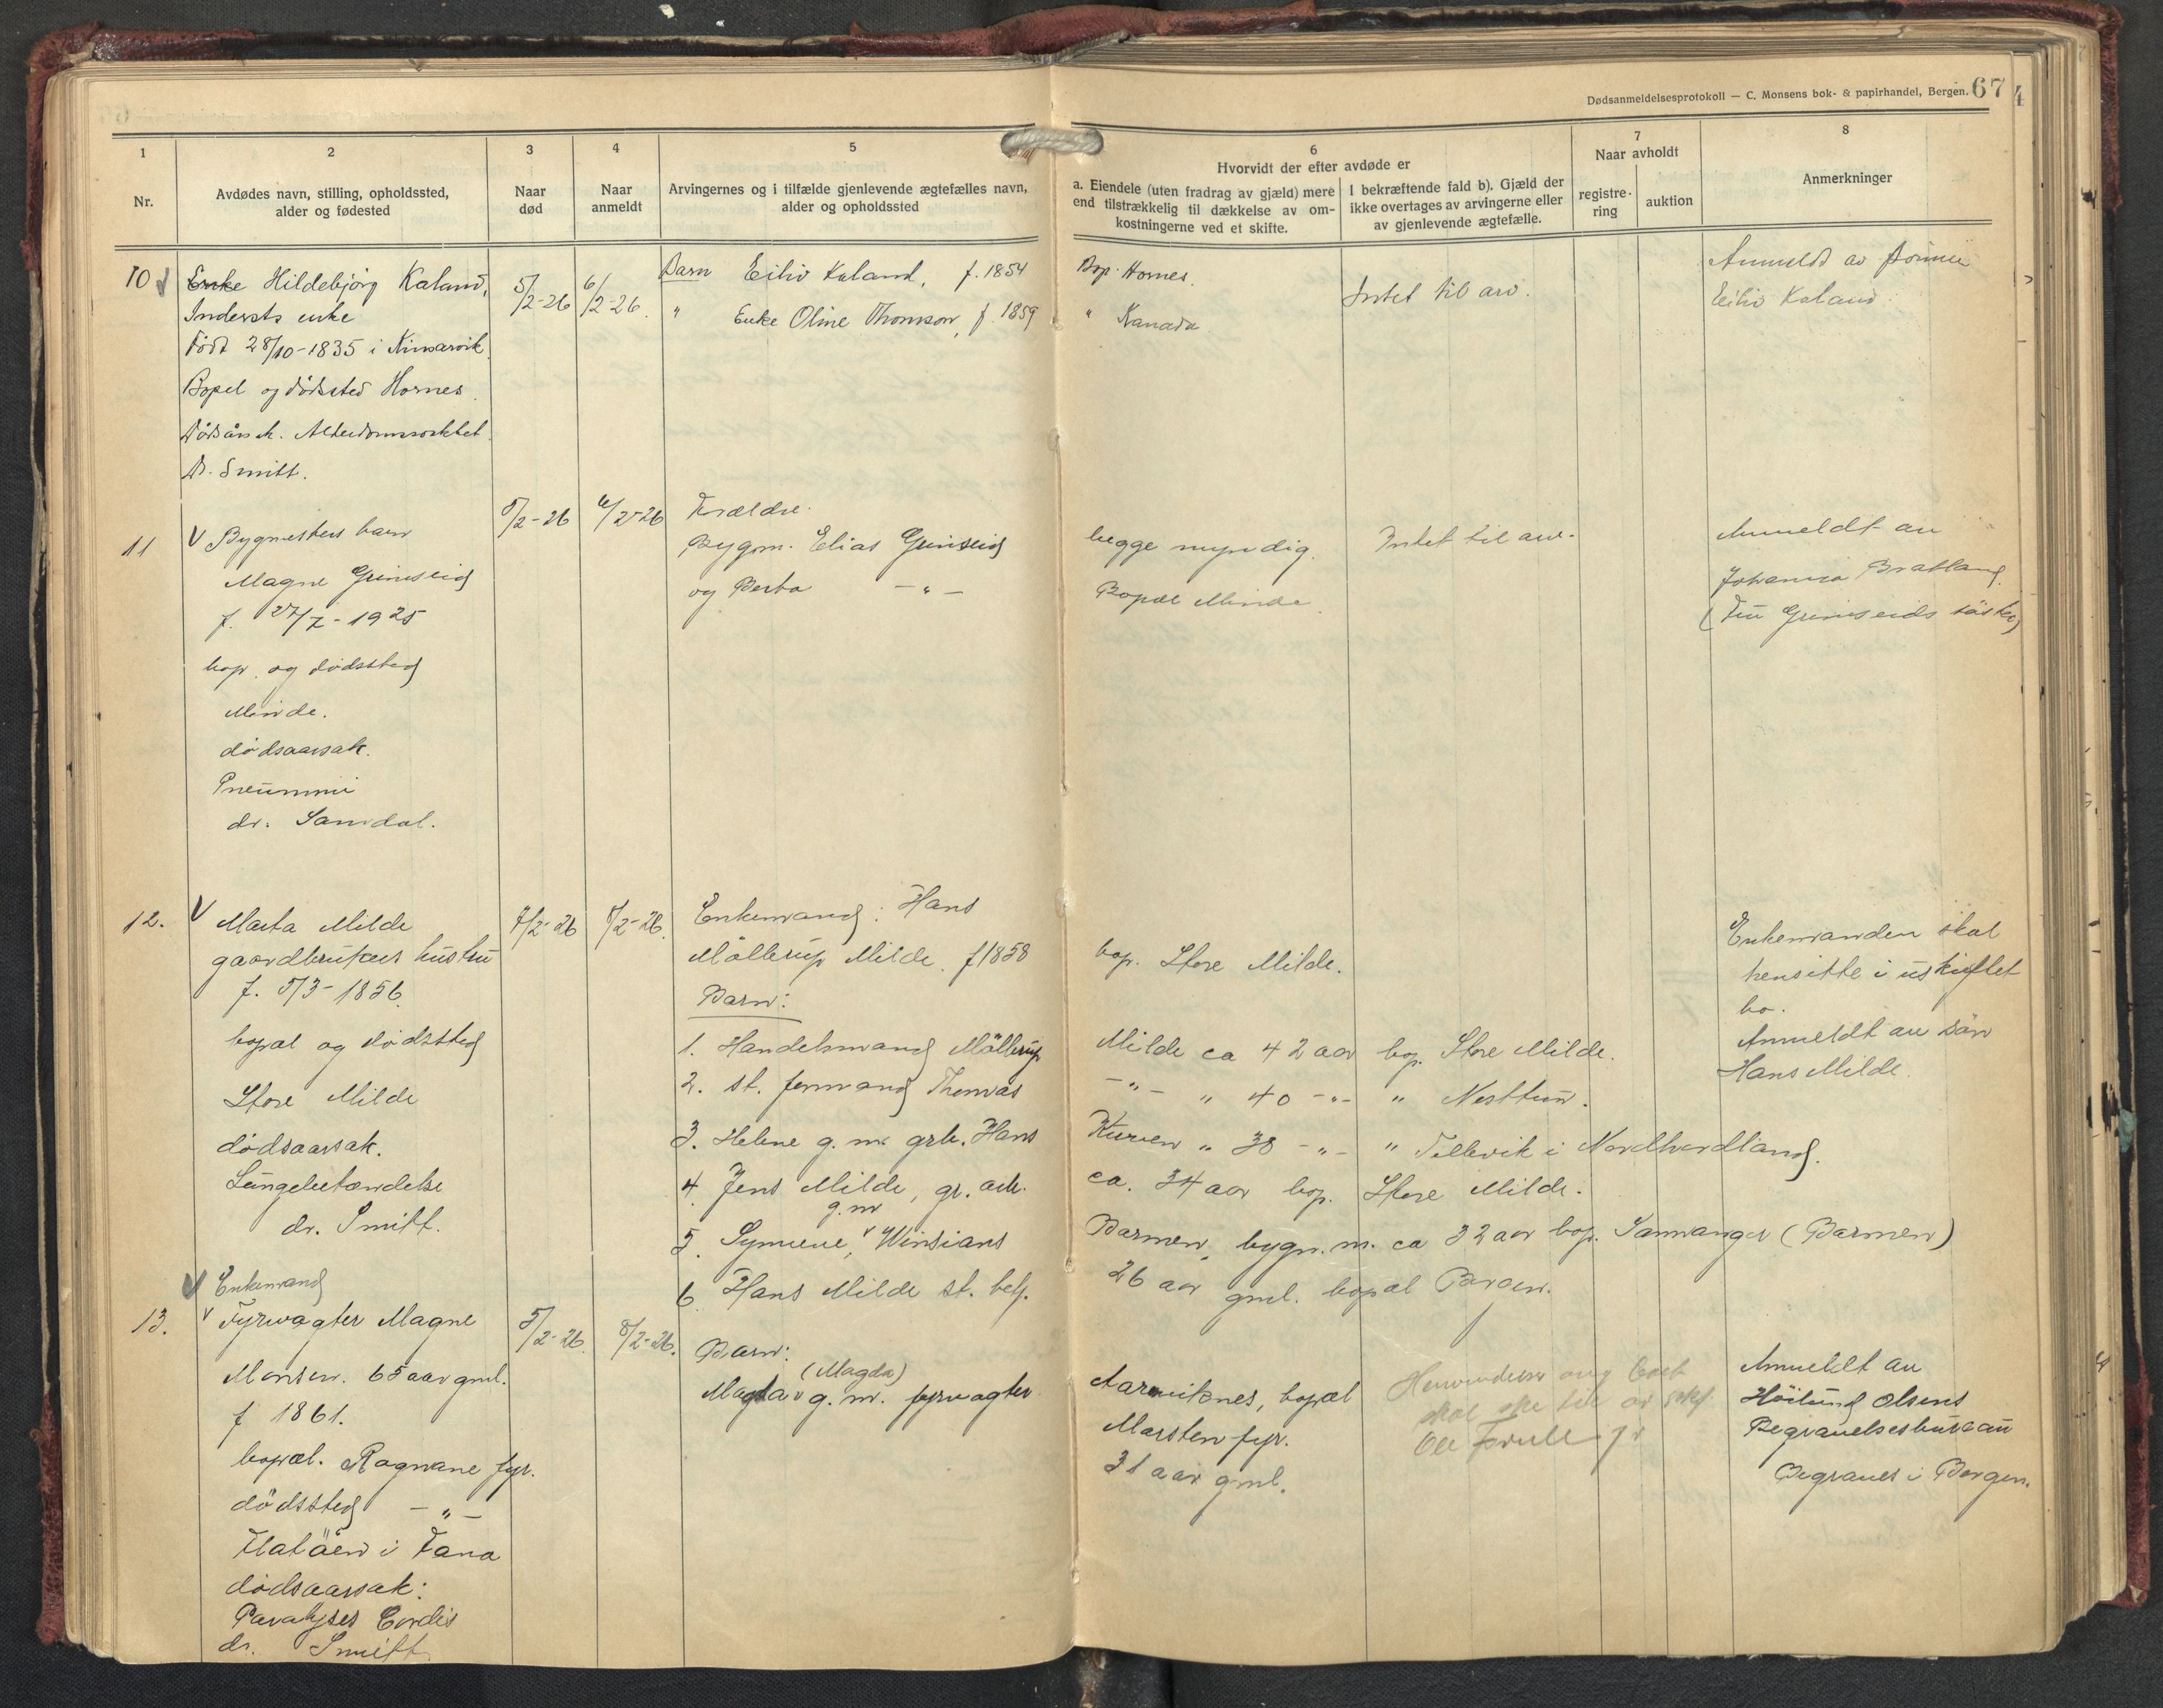 Dødsanmeldelsesprotokoll — C. Monsens bok- & papirhandel, Bergen. 67
1 2 3 4 5
Nr.
Avdødes navn, stilling, opholdssted,
alder og fødested
Naar
død
Naar
anmeldt
Arvingernes og i tilfælde gjenlevende ægtefælles navn,
alder og opholdssted
6
Hvorvidt der efter avdøde er
a. Eiendele (uten fradrag av gjæld) mere
end tilstrækkelig til dækkelse av om-
kostningerne ved et skifte.
I bekræftende fald b). Gjæld der
ikke overtages av arvingerne eller
av gjenlevende ægtefælle.
7
Naar avholdt
registre-
ring
auktion
8
Anmerkninger
10 Enke Hildebjörg Kaland,
Indersts enke
Født 28/10-1835 i Kinsarvik
Bopel og dödssted Hornes.
Dödsårsak. Alderdomssvakhet.
Dr. Smitt.
5/2-26
6/2-26.
Barn Eiliv Kaland, f. 1854
" Enke Oline Thomson, f. 1859
Bop. Hornes.
" Kanada
Intet til arv.
Anmeldt av sönnen
Eiliv Kaland.
11 Bygmesters barn
Magne Grimseid
f. 27/7-1925
bop. og dødssted
Minde.
dødsaarsak.
Pneumoni
dr. Samdal.
5/2-26
6/2-26
Forældre.
Bygm. Elias Grimseid
og Berta —"—
begge myndig.
Bopæl Minde.
Intet til arv.
Anmeldt av
Johanna Bratland.
(Fru Grimseids söster)
12. Marta Milde
gaardbrukers hustru
f. 5/3-1856.
bopæl og dødssted
Store Milde
dødsaarsak.
Lungebetændelse
dr. Smitt.
7/2-26
8/2-26.
Enkemand: Hans
Möllerup Milde. f 1858
Barn:
1. Handelsmand Möllerup
2. st. formand Thomas
3. Helene g. m. grb. Hans
4. Jens Milde, gr. arb.
g.m
5. Symene, Winsians
6. Hans Milde st. betj.
bop. Store Milde.
Milde ca 42 aar bop. Store Milde.
—"— " 40 —"— " Nesttun.
" 38 —"— " i Nordhordland.
ca. 34 aar bop. Store Milde.
Barmen, bygn. m. ca 32 aar bop. Samnanger (Barmen)
26 aar gml. bopæl Bergen.
Enkemanden skal
hensitte i uskiftet
bo.
Anmeldt av sön
Hans Milde.
13. Enkemand
Fyrvagter Magne
Monsen. 65 aar gml.
f 1861.
bopæl. Rognvane fyr.
dödssted —"—
Flatöen i Fana
dödsaarsak:
Paralyses Cordis
dr. Smitt
5/2-26
8/2-26.
Barn:
(Magda)
Magda g. m. fyrvagter
Aarviknes, bopæl
Marsten fyr.
31 aar gml.
Anmeldt av
Höilund Olsens
Begravelsesbureau
Begraves i Bergen.